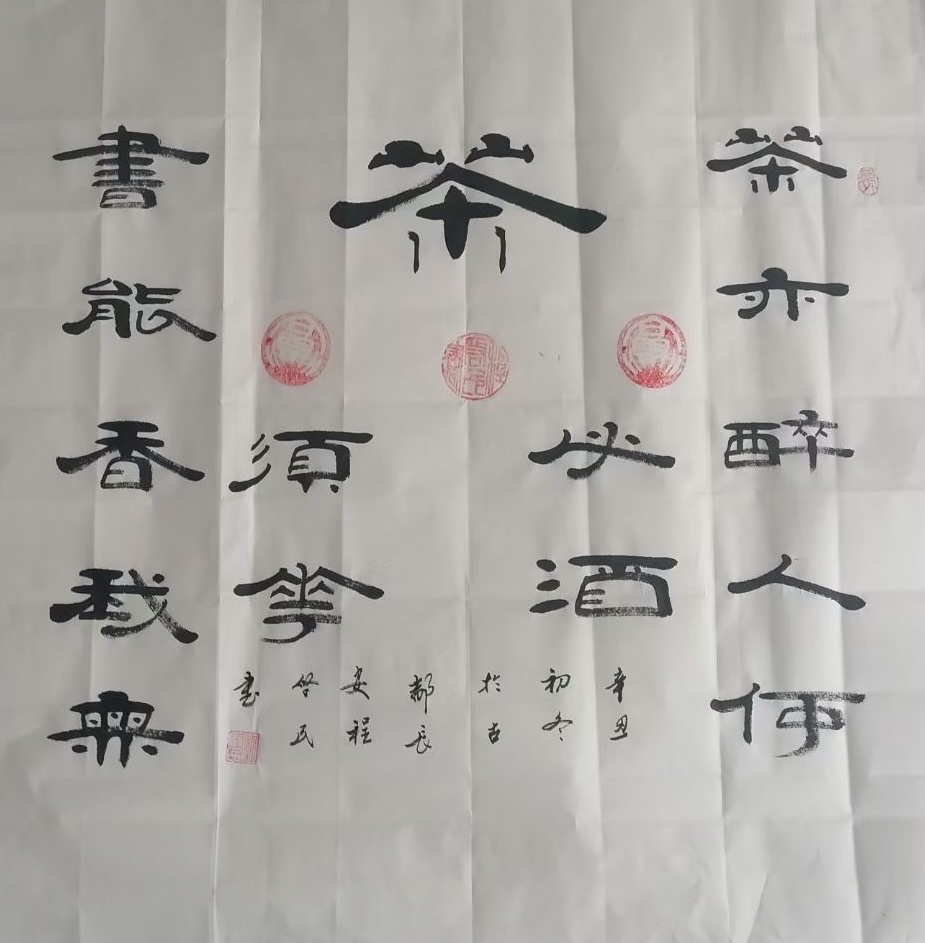 茶
茶亦醉人何
必酒
書能香我無
須華
辛丑
初冬
於古
都長
安程
啓民
書